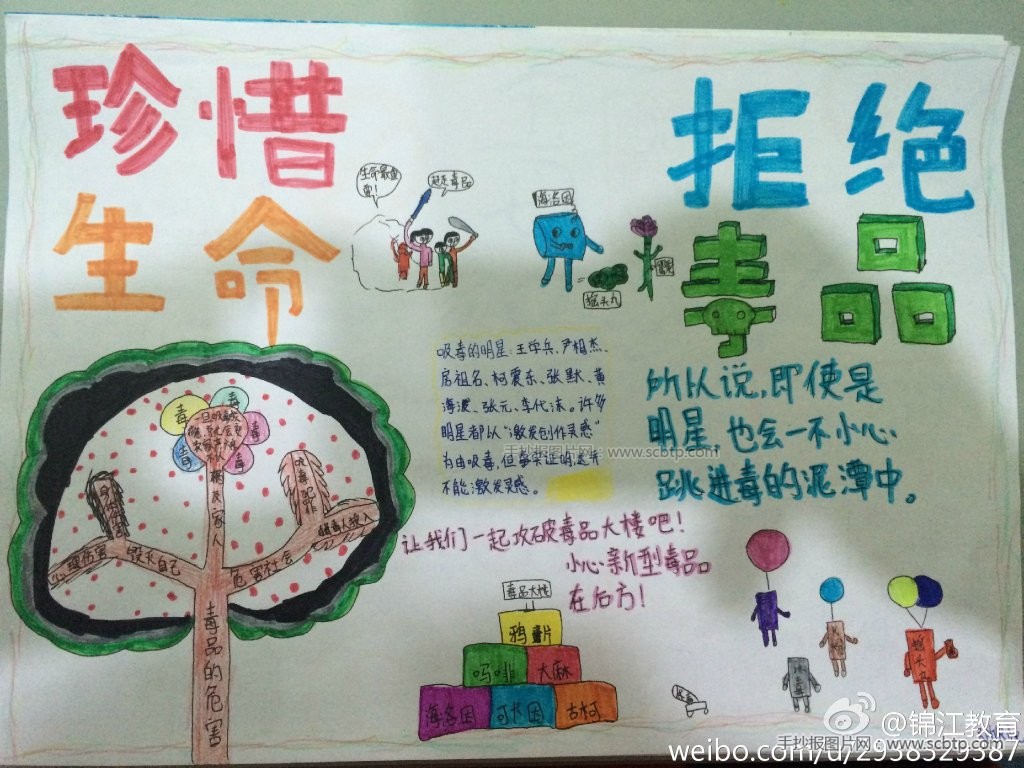 珍惜
生命
拒绝
毒品
生命最重
要!
赶走毒品
海洛因
摇头丸
吸毒的明星:王学兵、尹相杰、
房祖名、柯震东、张默、黄
海波、张元、李代沫。许多
明星都以“激发创作灵感”
为由吸毒,但事实证明,这并
不能激发灵感。
手抄报图片网 www.scbtp.com
所以说,即使是
明星,也会一不小心
跳进毒的泥潭中。
毒
毒
毒
毁灭自己
危害社会
毒品的危害
让我们一起攻破毒品大楼吧!
小心新型毒品
在后方!
毒品大楼
鸦片
吗啡
大麻
海洛因
可卡因
古柯
冰毒
摇头丸
@锦江教育
手抄报图片网 www.scbtp.com
weibo.com/u/2938529387